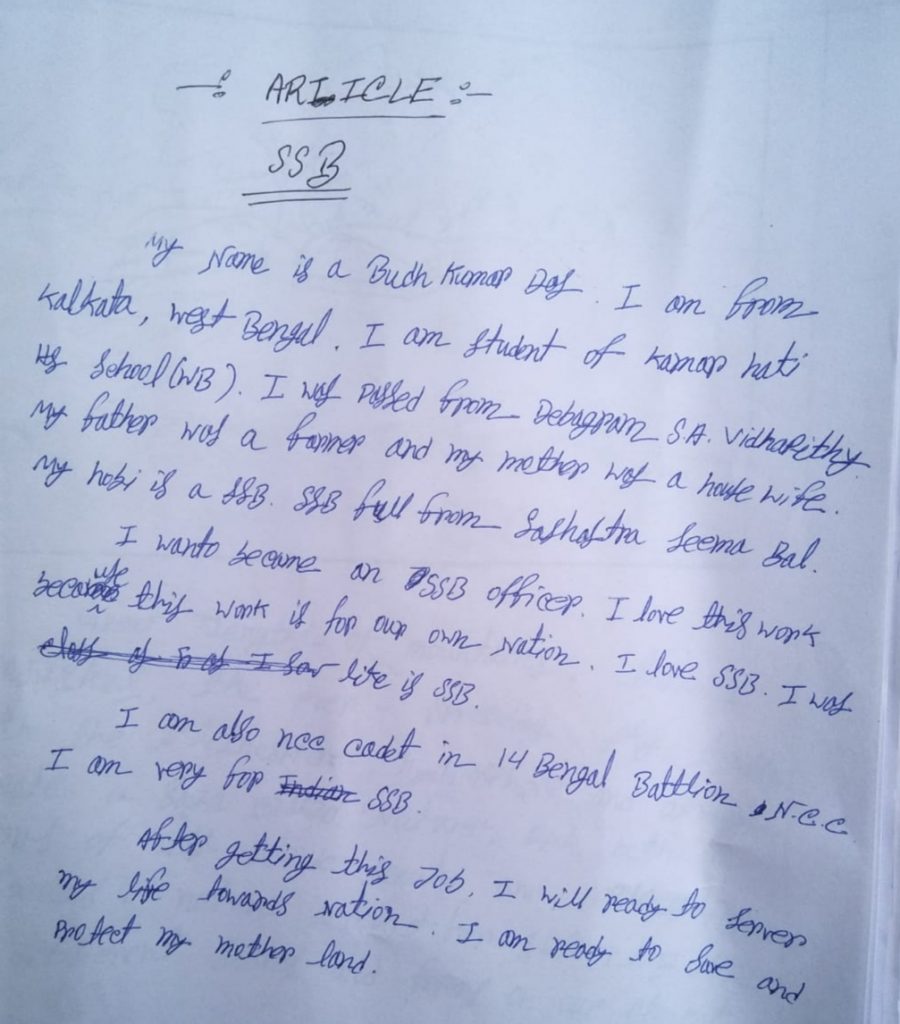 -: ARTICLE :-
SSB
My Name is a Budh Kumar Das. I am from
Kalkata, West Bengal. I am student of Kamar hati
HS School (WB). I was passed from Debagram S.A. Vidhapithy
My father was a farmer and my mother was a house wife.
My hobi is a SSB. SSB full from Sashastra Seema Bal.
I wanto become an SSB officer. I love this work
because this work is for our own Nation. I love SSB. I was
like is SSB.
I am also ncc cadet in 14 Bengal Battlion N.C.C
I am very for SSB.
After getting this Job, I will ready to server
my life towards Nation. I am ready to save and
Protect my mother land.